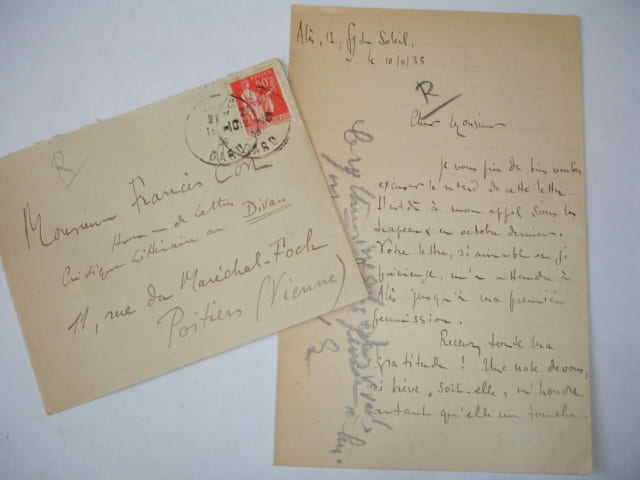 Monsieur Francis
Homme de Lettres
Critique Littéraire au Divan
11, rue du Maréchal-Foch
Poitiers (Vienne)
R
POSTES
50c
GARD
Alès, 12, Fg du Soleil,
le 10/ /35
R
Cher Monsieur
Je vous prie de bien vouloir
excuser le retard de cette lettre.
Il est dû à mon appel sous les
drapeaux en octobre dernier.
Votre lettre, si aimable et si
précieuse, m'a attendu à
Alès jusqu'à ma première
permission.
Recevez toute ma
gratitude ! Une note de vous,
si brève soit-elle, m'honore
autant qu'elle me touche.